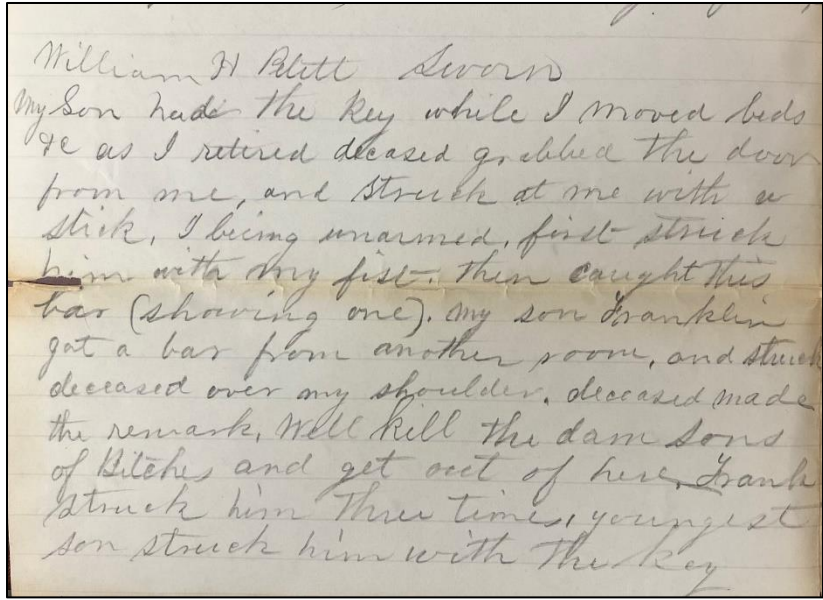 William H Pelitt Sworn
My Son had the key while I moved beds
&c as I retired decased grabbed the door
from me, and struck at me with a
stick, I being unarmed, first struck
him with my fist. then caught this
bar (showing one). my son Franklin
got a bar from another room, and struck
deceased over my shoulder. deceased made
the remark, Well kill the dam Sons
of Bitches and get out of here, Frank
struck him three times, youngest
son struck him with the key